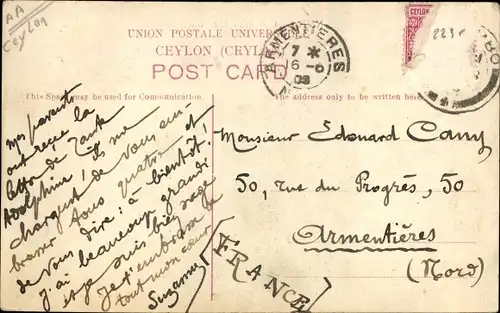 AA
Ceylon
UNION POSTALE UNIVERSELLE
CEYLON (CEYLAN)
POST CARD
ARMENTIERES
7 *
16 -6
09
CEYLON
223
This Space may be used for Communication.
The address only to be written here.
mes parents
ont reçu la
lettre de Tante
Adolphine! Ils me
chargent de vous em-
brasser tous quatre et
de vous dire: à bientôt!
J'ai beaucoup grandi
et je suis bien sage
Je t'embrasse de
tout mon cœur
Suzanne
Monsieur Edouard Cany
50, rue du Progrès, 50
Armentières
(Nord)
[FRANCE]